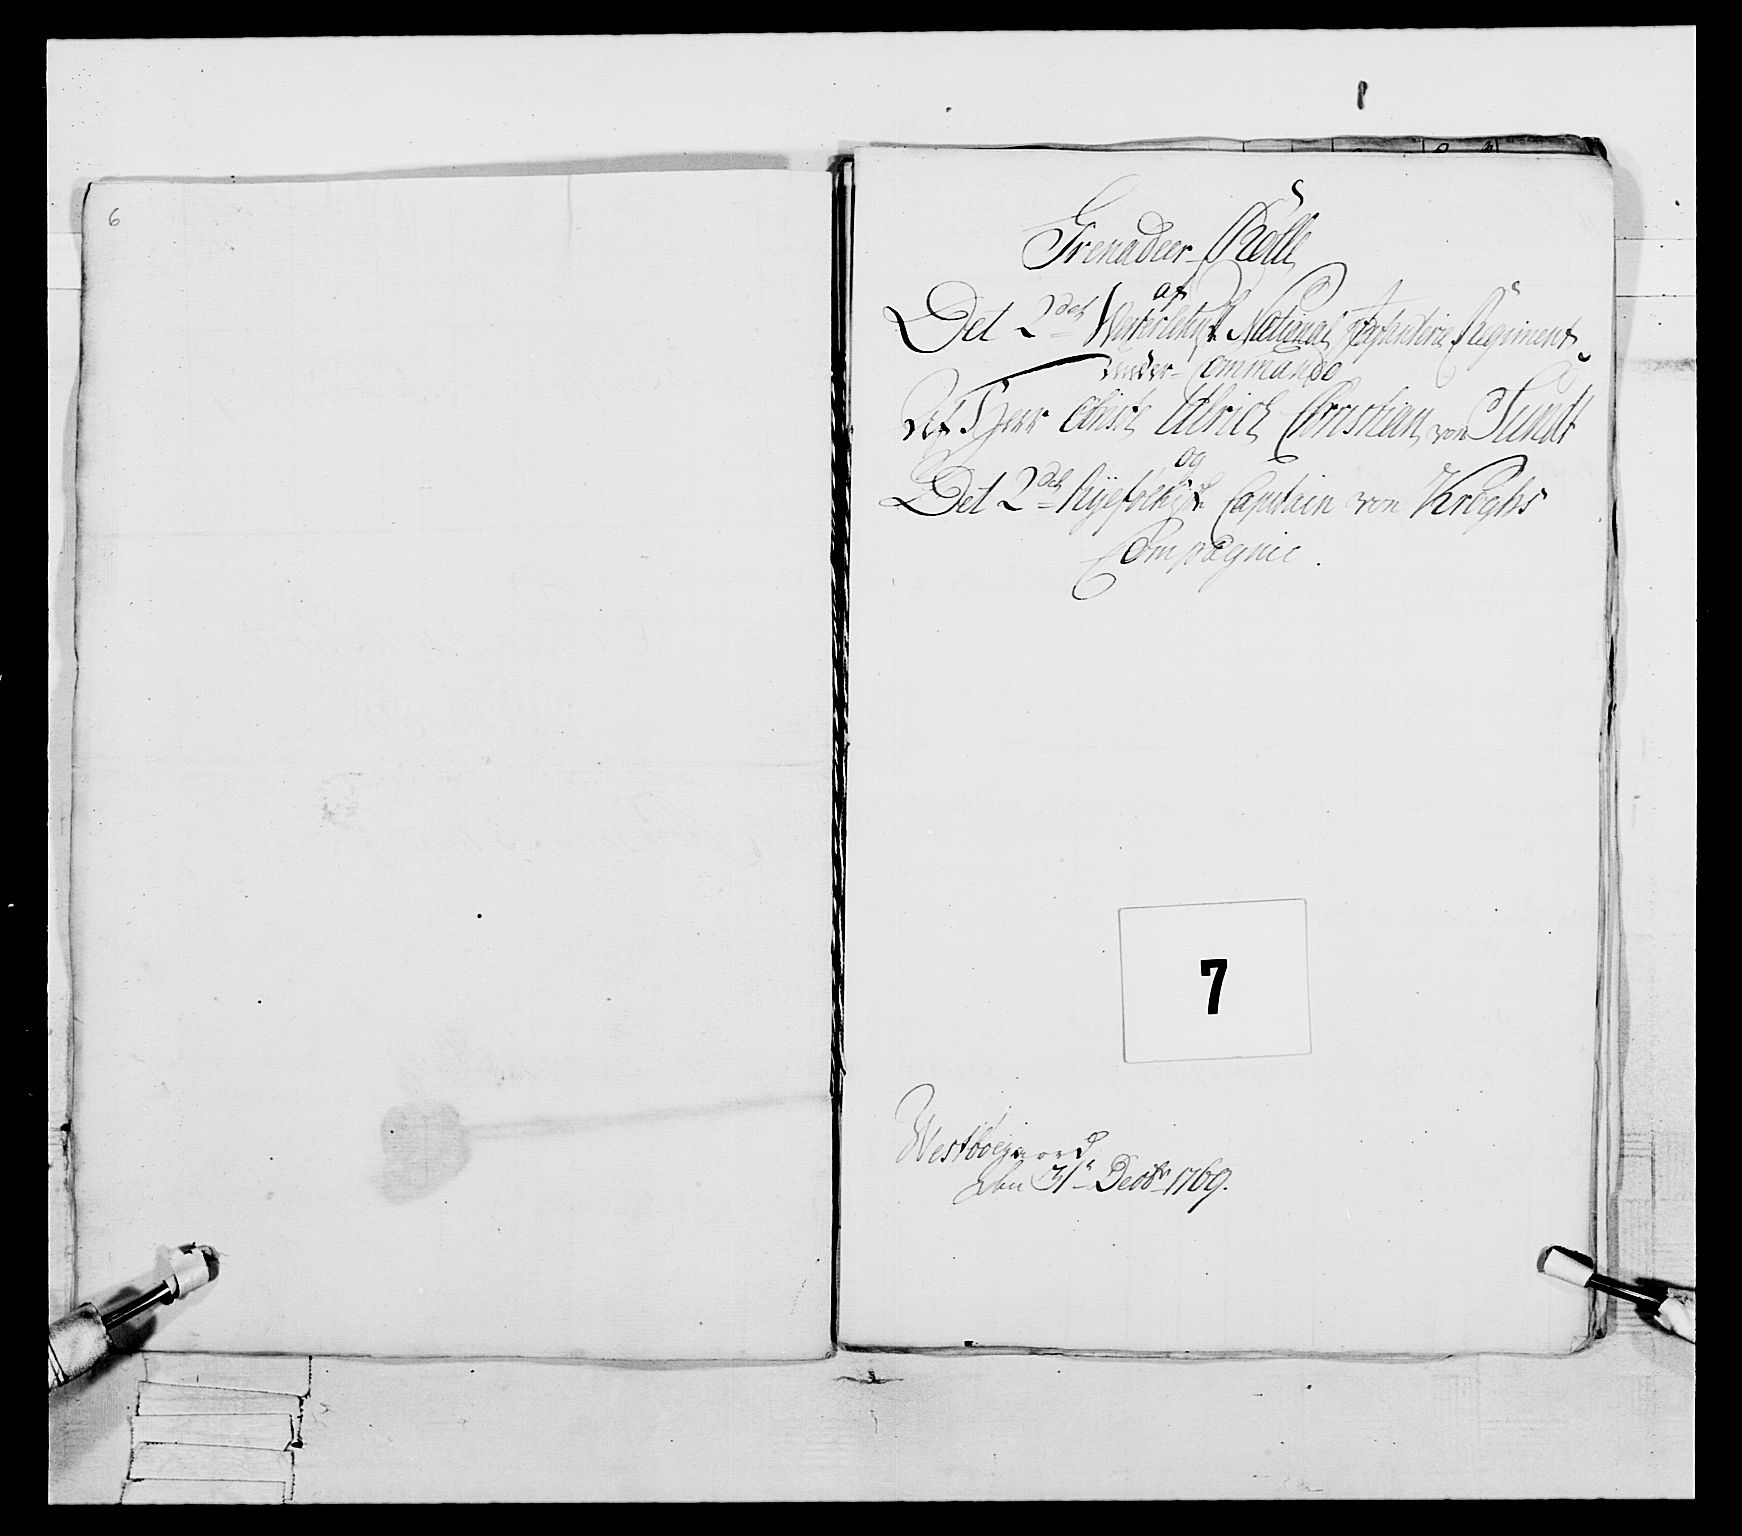 6
Grenadeer Rolle
af
Det 2det Westerlehnske National Infanterie Regiment
under Commando
Af Herr Oberste Ulrich Christian von Sundt
og
Det 2det Ryefylkiske Capitain von Kroghs
Compagnie.
7
Westbøegaard
den 31te Decbr 1769.